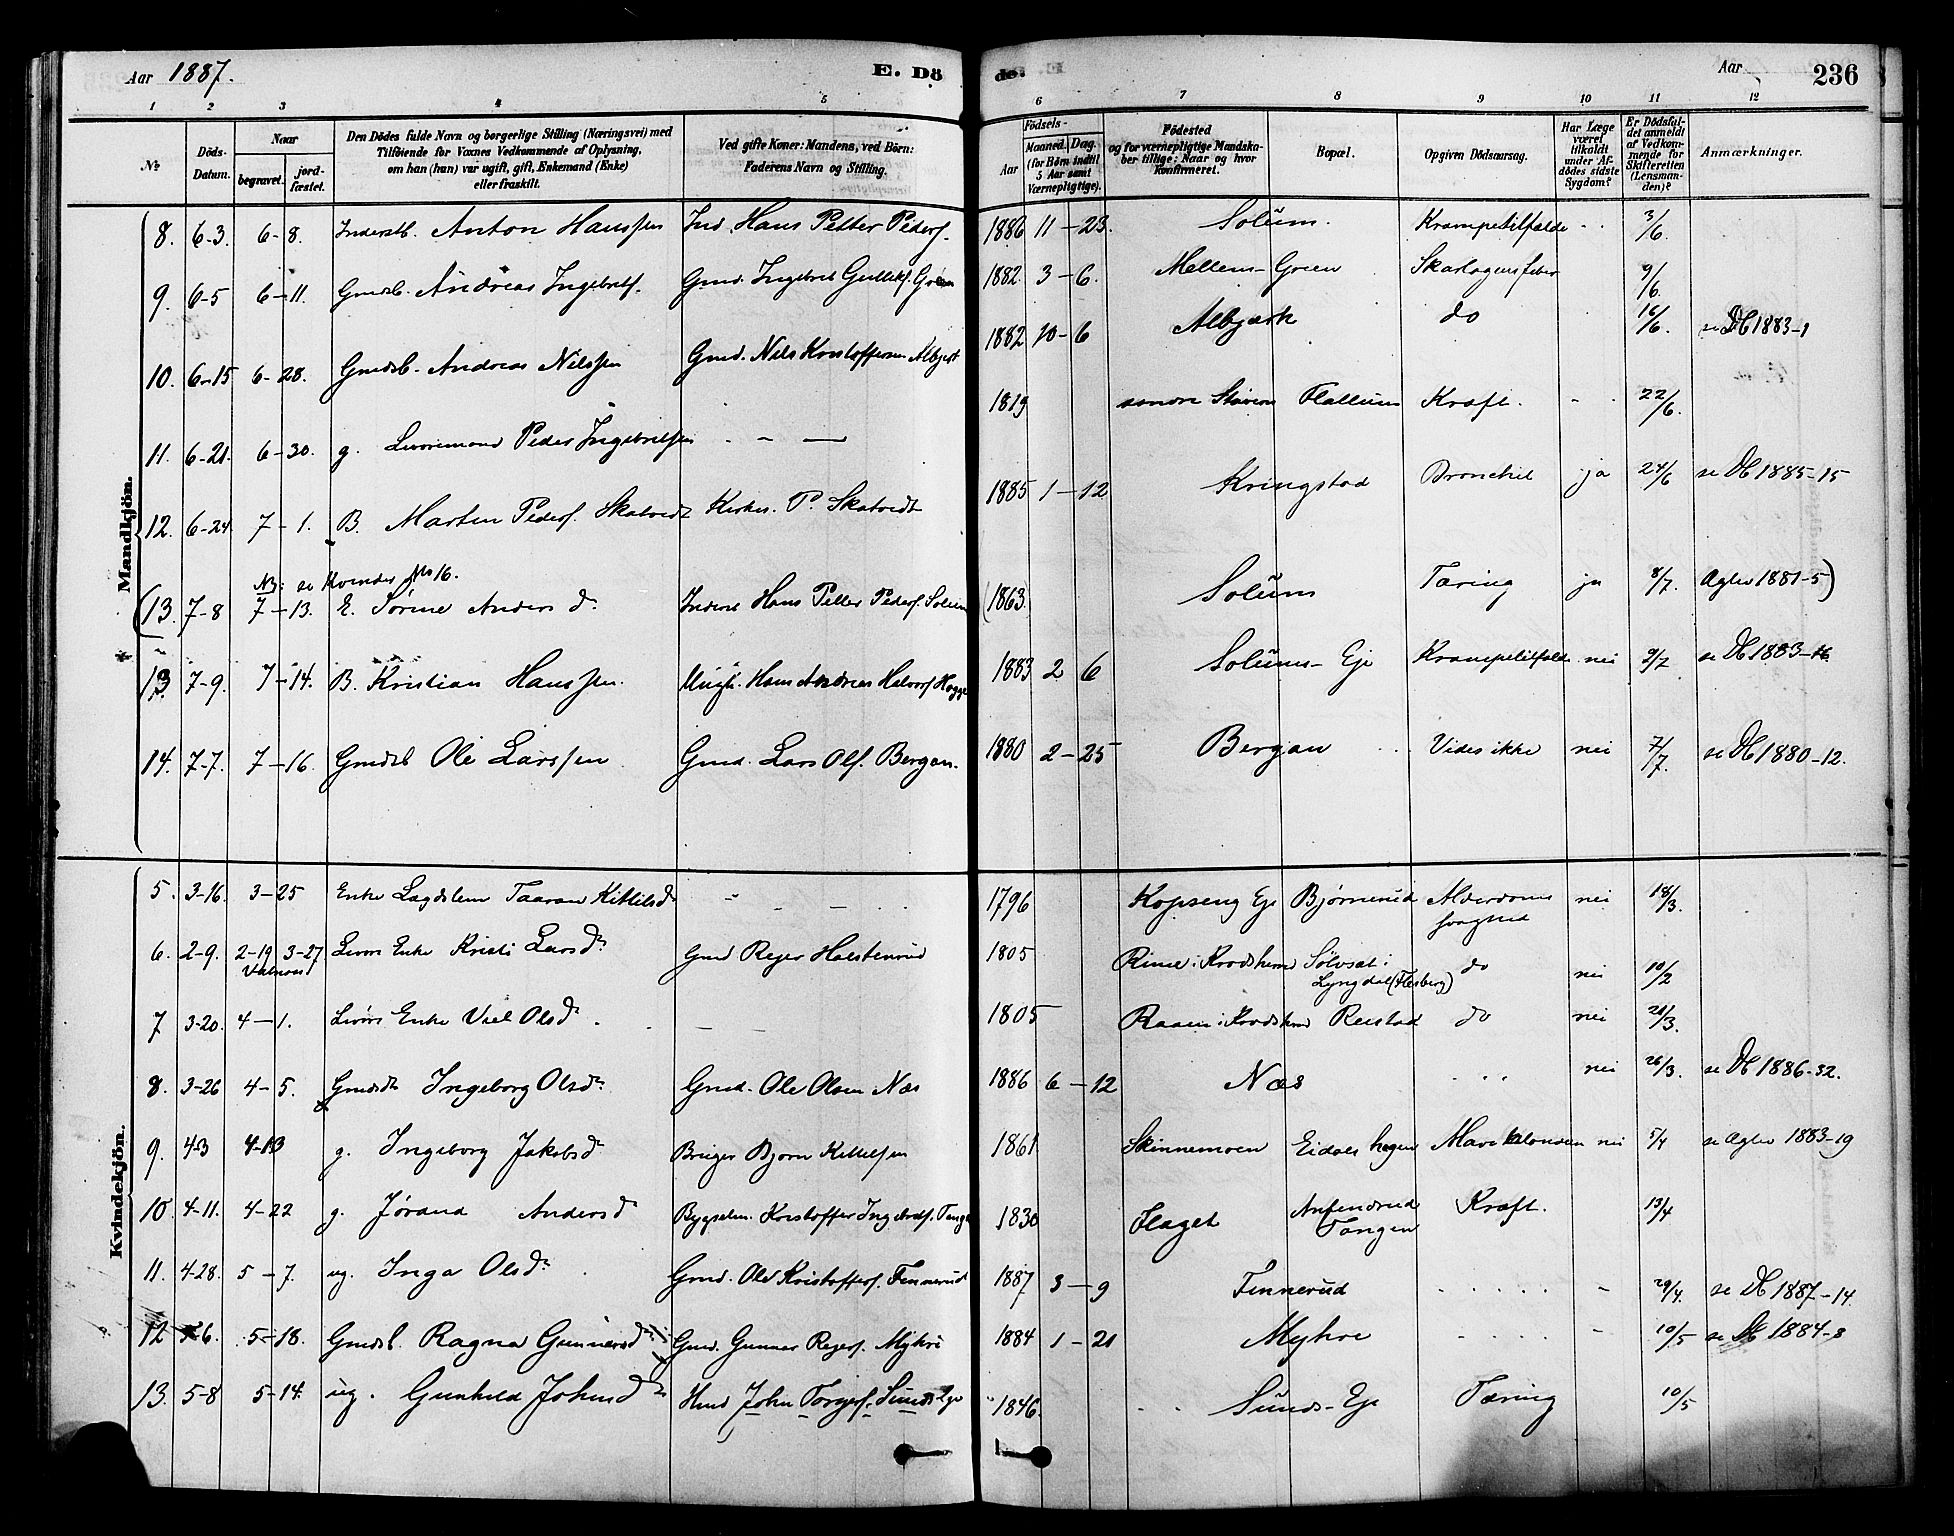 Aar 1887. E. Dö
de. Aar 236
1 2 3 4 5 6 7 8 9 10 11 12
№ Döds-Datum. Naar begravet. jordfæstet. Den Dödes fulde Navn og borgerlige Stilling (Næringsvei) med Tilföiende for Voxnes Vedkommende af Oplysning, om han (hun) var ugift, gift, Enkemand (Enke) eller fraskilt. Ved gifte Koner: Mandens, ved Börn: Faderens Navn og Stilling. Födsels- Aar Maaned. Dag. (for Börn indtil 5 Aar samt Værnepligtige). Födested og for værnepligtige Mandskaber tillige: Naar og hvor konfirmeret. Bopæl. Opgiven Dödsaarsag. Har Læge været tilkaldt under Afdödes sidste Sygdom? Er Dödsfaldet anmeldt af Vedkommende for Skifteretten (Lensmanden)? Anmærkninger.
Mandkjön.
8. 6-3. 6-8. Inderstb. Anton Hanssen Ind. Hans Petter Peders. 1886 11-23. Solum. Krampetilfælde - . 3/6.
9. 6-5 6-11. Gmdsb. Andreas Ingebrets. Gmd. Ingebret Gulliks. Green 1882 3-6. Mellem-Green Skarlagensfeber 9/6.
10. 6-15 6-28. Gmdsb. Andreas Nilssen Gmd. Nils Kristoffersen Albjerk 1882 10-6 Albjerk do 16/6. se Db 1883-1
11. 6-21. 6-30. g. Peder Ingebretsen - - — 1819 søndre Støvern Flallum Kræft. - . 22/6.
12. 6-24 7-1. B. Marten Peders. Skatvedt Kirkes. P. Skatvedt 1885 1-12 Kringstad Bronchit ja 24/6 se Db 1885-15
NB: se Kvinder No 16.
(13. 7-8 7-13. E. Sørine Anders d. Inderst Hans Petter Peders. Solum (1863. Solum Tæring ja 8/7. Ægtev 1881-5)
13. 7-9. 7-14. B. Kristian Hanssen. Hans Andreas Halvors. 1883 2 6 Solums-Eje Krampetilfælde nei 9/7 se Db 1883-16
14. 7-7. 7-16. Gmdsb Ole Larssen Gmd. Lars Ols. Bergan. 1880 2-25 Bergan Vides ikke nei 7/7. se Db 1880-12.
Kvindekjön.
5. 3-16. 3-25 Enke Lægdslem Taaran Kittilsd. - - - . 1796 Kopseng Eje Bjørnerud Alderdoms svaghed nei 18/3.
6. 2-9. 2-19 3-27 Enke Kristi Larsd. Gmd Reyer Halstenrud 1805 Rime i Krødshered Sølvsæt i Lyngdal (Flesberg) do nei 10/2
7 3-20. 4-1. Enke Viel Olsd. - - 1805 Raaen i Krødshered Reistad do nei 21/3.
8. 3-26 4-5. Gmdsdt Ingeborg Olsd. Gmd. Ole Olsen Næs 1886 6-12 Næs . . . nei 26/3. se Db 1886-32.
9. 4-3 4-13 g. Ingeborg Jakobsd. Bruger Bjørn Kittelsen 1861 Skinnemoen Eidals hagen nei 5/4 se Ægtev 1883-19
10. 4-11. 4-22 g. Jørand Anders d. Bygselm. Kristoffer Ingebrets. Tangen 1830 Flaget Antendrud Tangen Kræft. 13/4
11. 4-28. 5-7. ug. Inga Olsd. Gmd. Ole Kristoffers. Finnerud 1887 3-9 Finnerud . . . . . - 29/4. se Db 1887-14.
12 5-6. 5-18. Gmdsb. Ragna Gunnersd. Gmd. Gunner Reyers. Mykre 1884 1-21 Mykre . . . . - 10/5 se Db 1884-8
13. 5-8 5-14. ug. Gunhild Johnsd. Hmd John Torgers. Sunds Eje 1846. Sunds-Eje Tæring 10/5